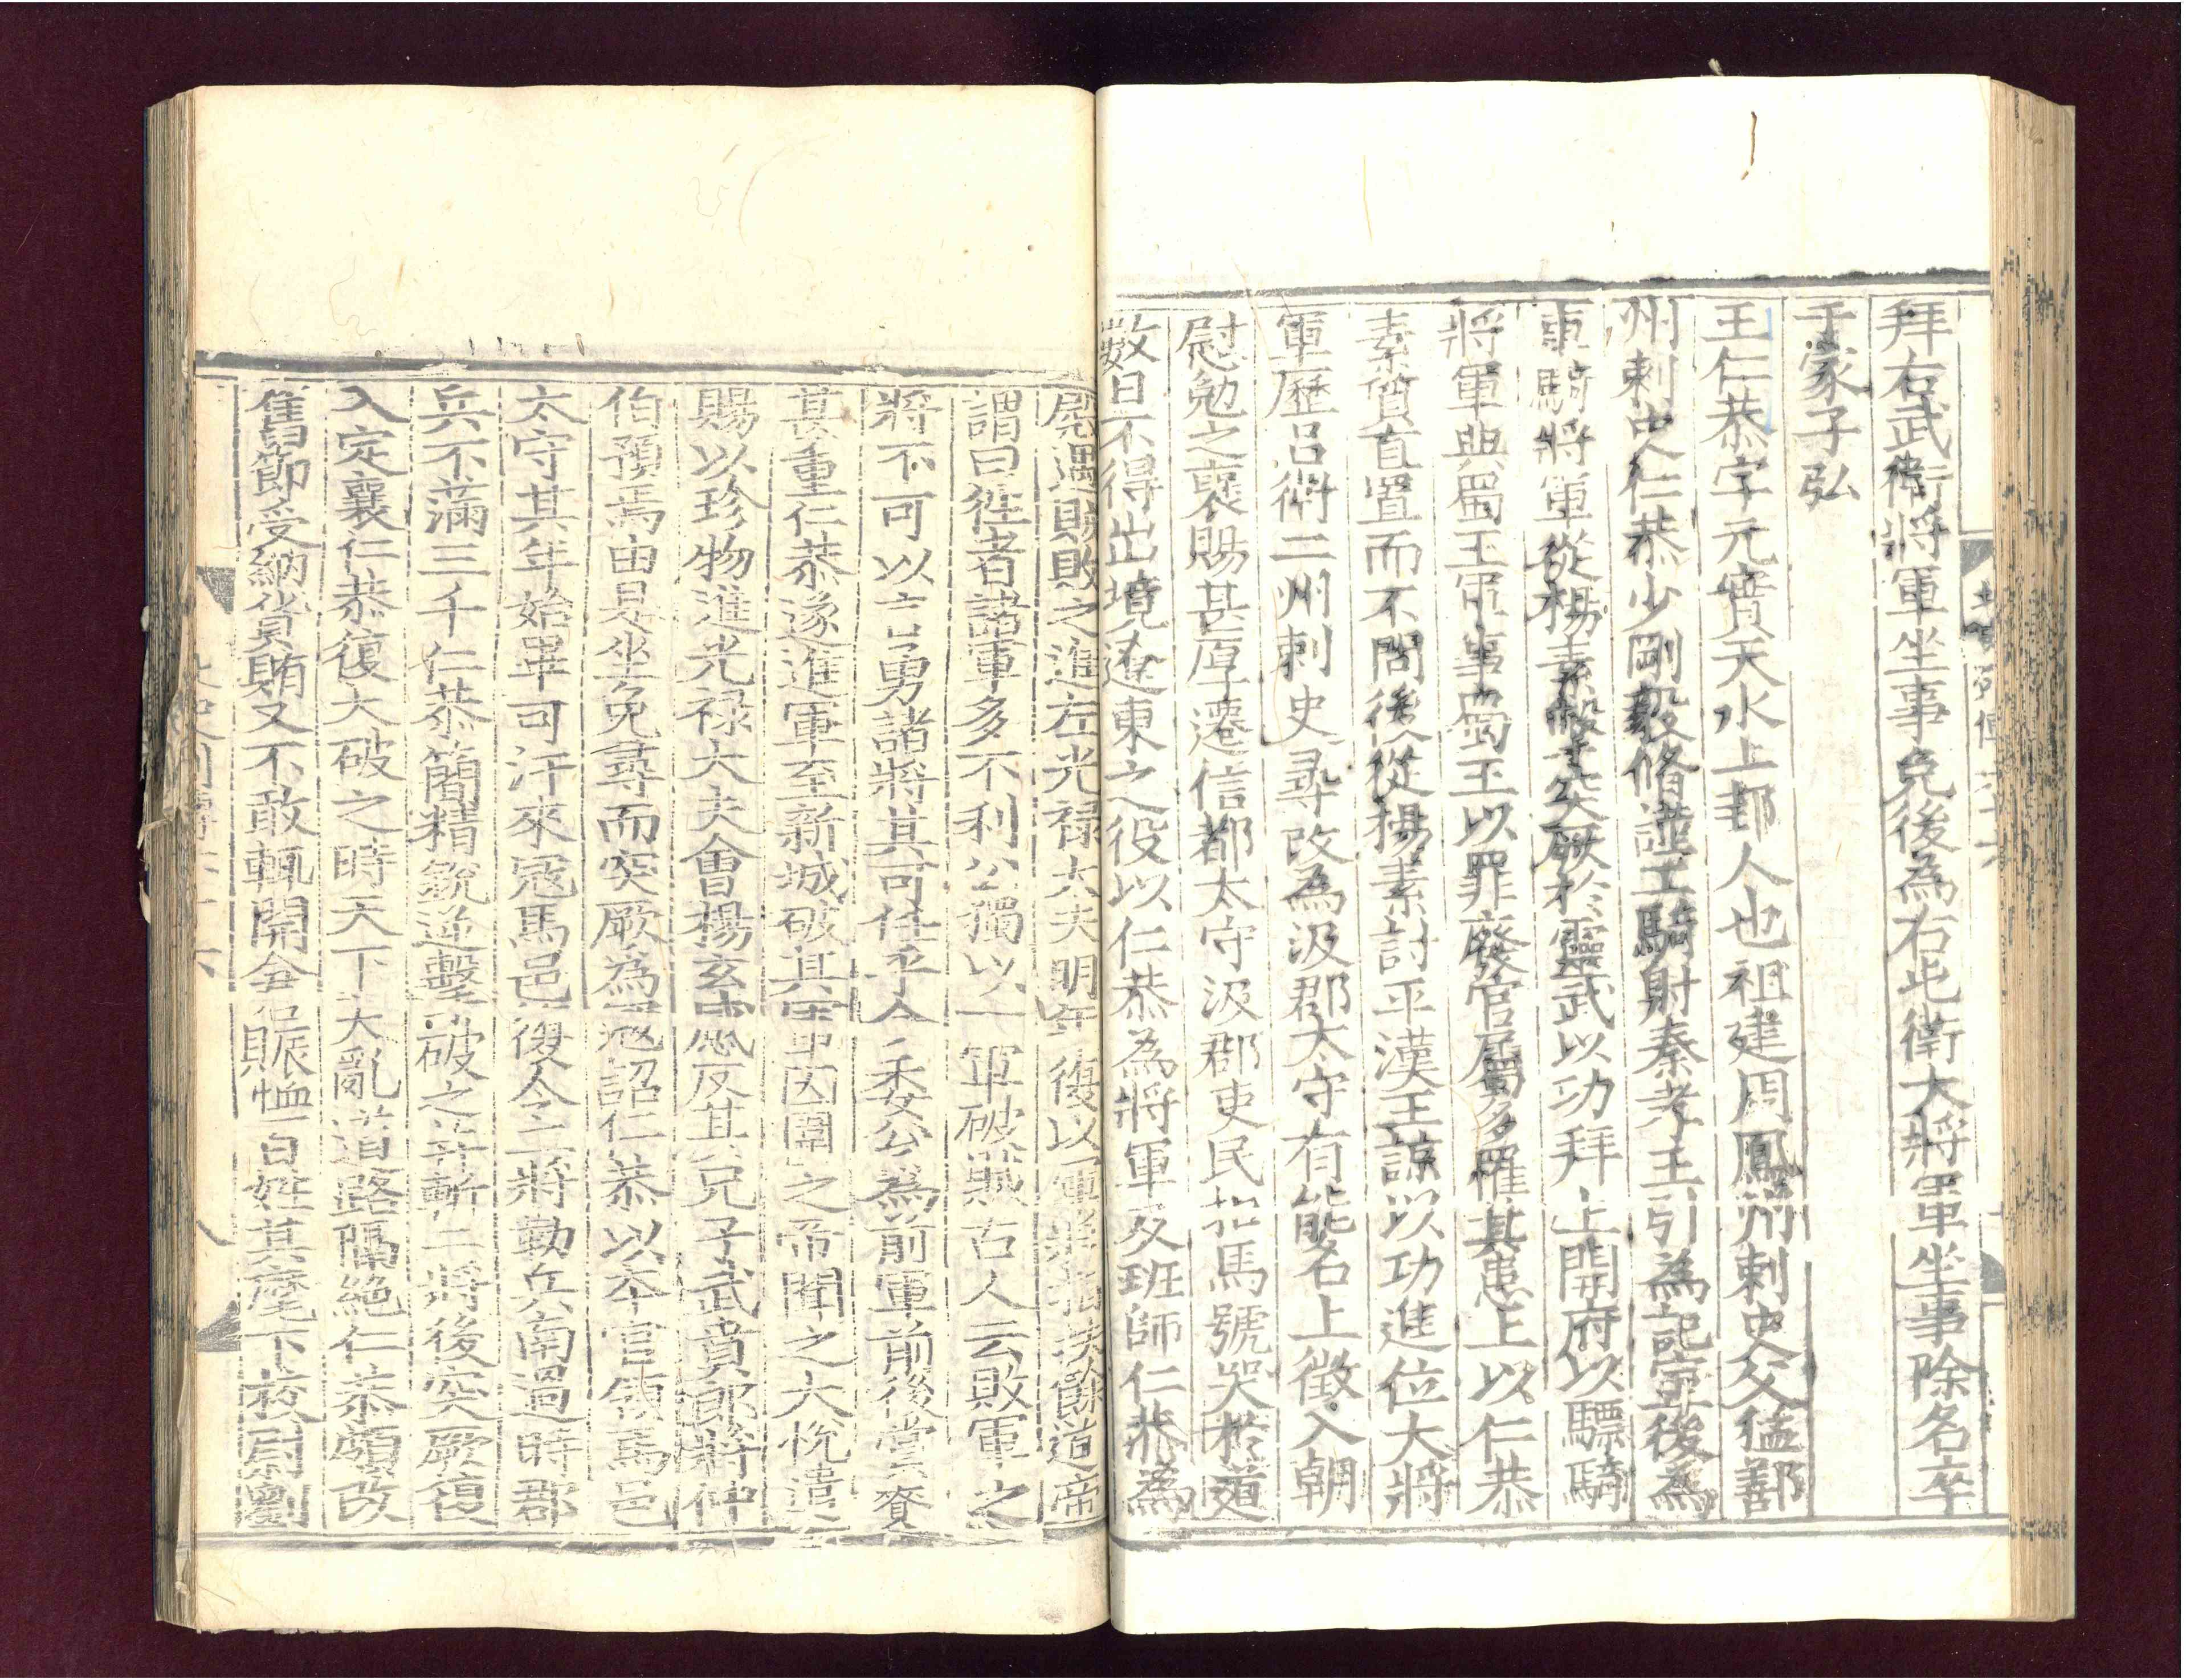 拜右武衛將軍坐事免後為右屯衛大將軍坐事除名卒
于家子弘
王仁恭字元實天水上邽人也祖建周鳳州刺史父猛鄯
州刺史仁恭少剛毅脩謹工騎射秦孝王引為記室後為
車騎將軍從楊素擊突厥於靈武以功拜上開府以驃騎
將軍典蜀王軍事蜀王以罪廢官屬多罹其患上以仁恭
素質直置而不問後從楊素討平漢王諒以功進位大將
軍歷呂衛二州刺史尋改為汲郡太守有能名上徵入朝
慰勉之褒賜甚厚遷信都太守汲郡吏民扣馬號哭於道
數日不得出境遼東之役以仁恭為將軍及班師仁恭為
殿遇賊敗之進左光祿大夫明年復以軍將指扶餘道帝
謂曰往者諸軍多不利公獨以一軍破賊古人云敗軍之
將不可以言勇諸將其可任乎今委公為前軍前後賞賚
甚重仁恭遂進軍至新城破其軍因圍之帝聞之大悅遣
賜以珍物進光祿大夫會楊玄感反其兄子武賁郎將仲
伯預焉由是坐免尋而突厥為寇詔仁恭以本官領馬邑
太守其年始畢可汗來寇馬邑復令二將勒兵南過時郡
兵不滿三千仁恭簡精銳逆擊破之并斬二將後突厥復
入定襄仁恭復大破之時天下大亂道路隔絕仁恭頗改
舊節受納貨賄又不敢輒開倉賑恤百姓其麾下校尉劉